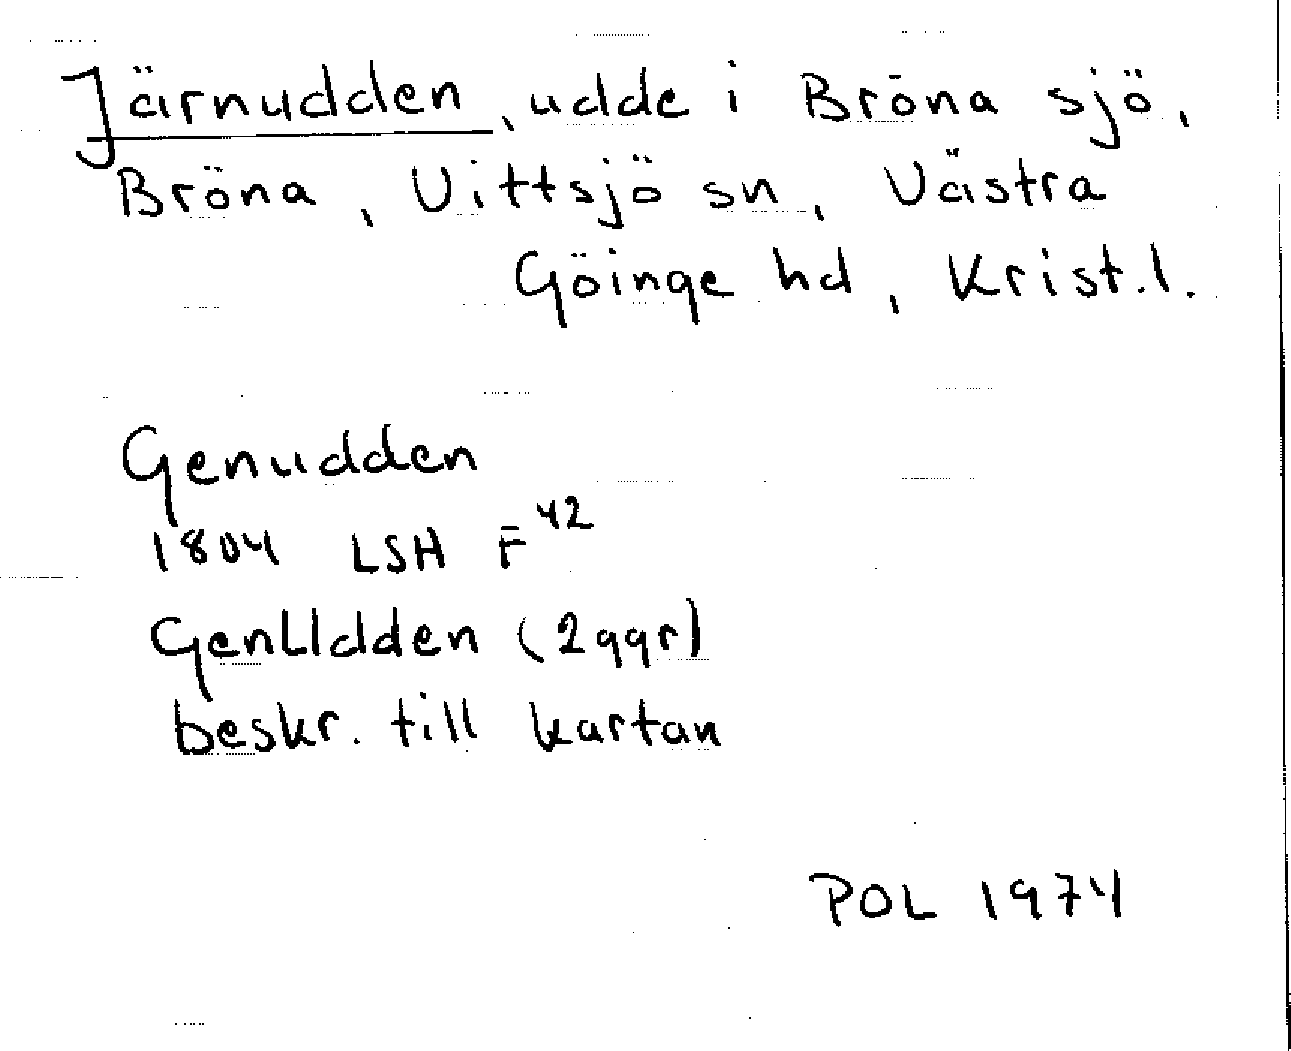 Järnudden, udde i Bröna sjö,
Bröna, Vittsjö sn, Västra
Göinge hd, Krist.l.
Genudden
1804 LSH F⁴²
GenUdden (2ggr)
beskr. till kartan
POL 1974